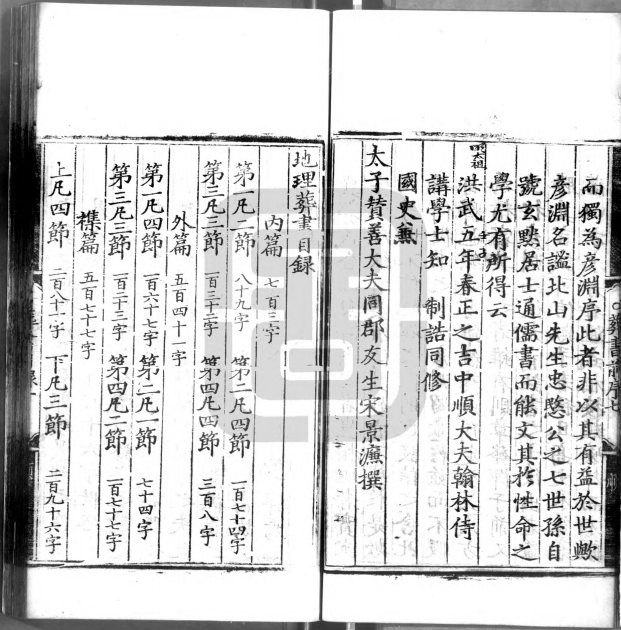 而獨為彦淵序此者非以其有益於世歟
彦淵名謐北山先生忠愍公之七世孫自
號玄默居士通儒書而能文其於性命之
學尤有所得云
洪武五年春正之吉中順大夫翰林侍
講學士知 制誥同修
國史兼
太子贊善大夫同郡友生宋景濂撰
地理葬書目録
内篇 七百三字
第一凡一節 八十九字 第二凡四節 一百七十四字
第三凡三節 一百三十三字 第四凡四節 三百八字
外篇 五百四十一字
第一凡四節 一百六十七字 第二凡一節 七十四字
第三凡三節 一百二十三字 第四凡二節 一百七十七字
襍篇 五百七十七字
上凡四節 二百八十一字 下凡三節 二百九十六字